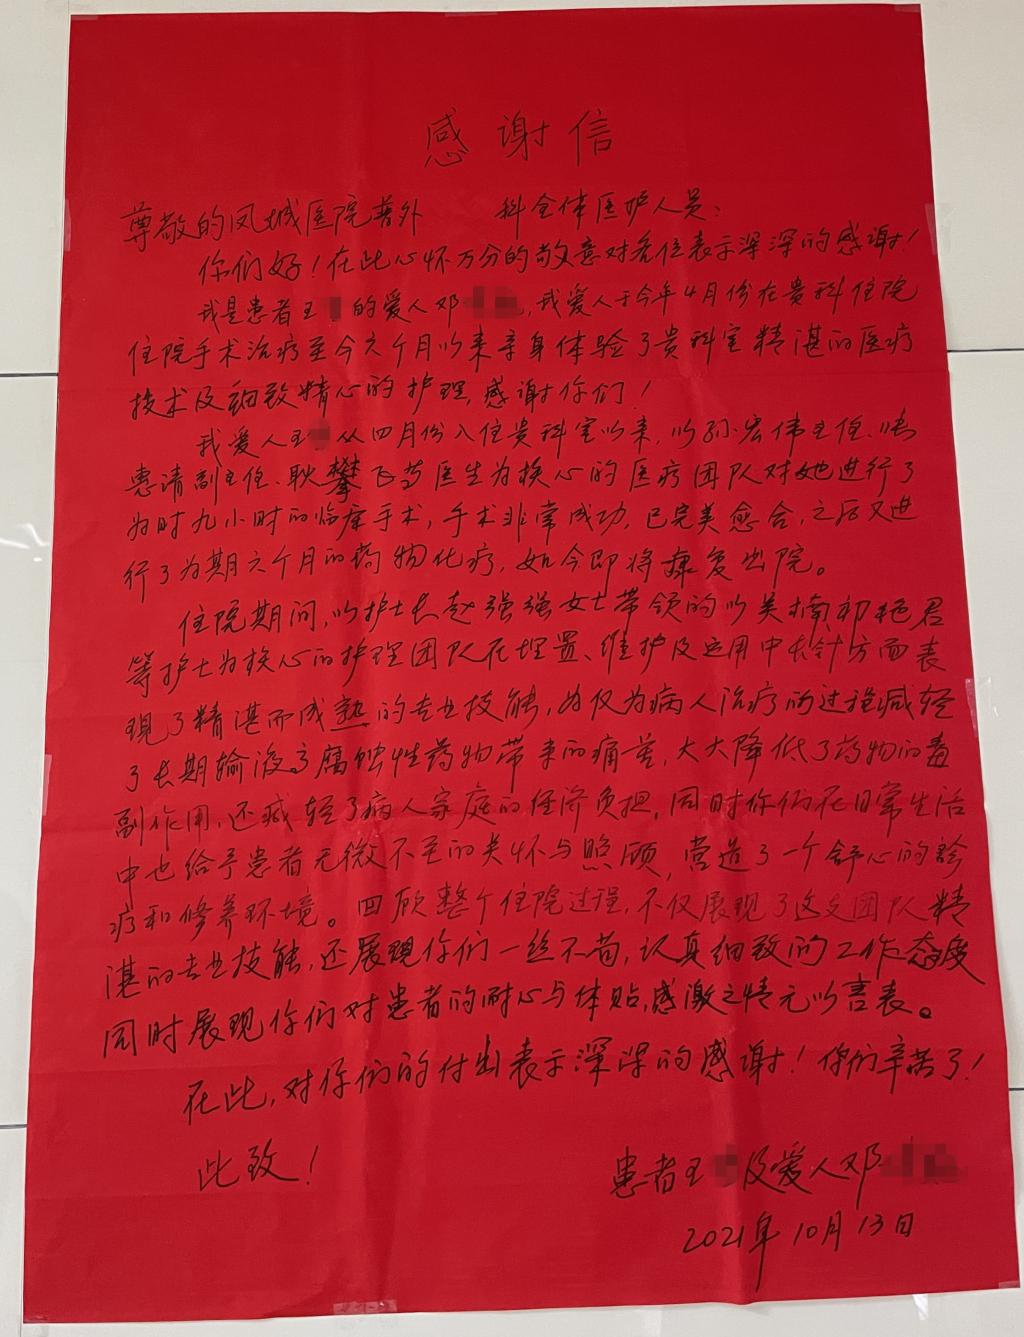 感谢信
尊敬的凤城医院普外 科全体医护人员:
你们好!在此心怀万分的敬意对各位表示深深的感谢!
我是患者王 的爱人邓 ,我爱人于今年4月份在贵科住院
住院手术治疗至今六个月以来亲身体验了贵科室精湛的医疗
技术及细致精心的护理,感谢你们!
我爱人王 从四月份入住贵科室以来,以孙宏伟主任、
惠清副主任、耿攀飞等医生为核心的医疗团队对她进行了
为时九小时的临床手术,手术非常成功,已完美愈合,之后又进
行了为期六个月的药物化疗,如今即将康复出院。
住院期间,以护士长赵强强女士带领的以吴楠祁艳君
等护士为核心的护理团队在埋置、维护及运用中长针方面表
现了精湛而成熟的专业技能,为仅为病人治疗的过程减轻
了长期输液高腐蚀性药物带来的痛苦,大大降低了药物的毒
副作用,还减轻了病人家庭的经济负担,同时你们在日常生活
中也给予患者无微不至的关怀与照顾,营造了一个舒心的诊
疗和修养环境。回顾整个住院过程,不仅展现了这支团队精
湛的专业技能,还展现你们一丝不苟,认真细致的工作态度
同时展现你们对患者的耐心与体贴,感激之情无以言表。
在此,对你们的付出表示深深的感谢!你们辛苦了!
此致!
患者王 及爱人邓
2021年10月13日